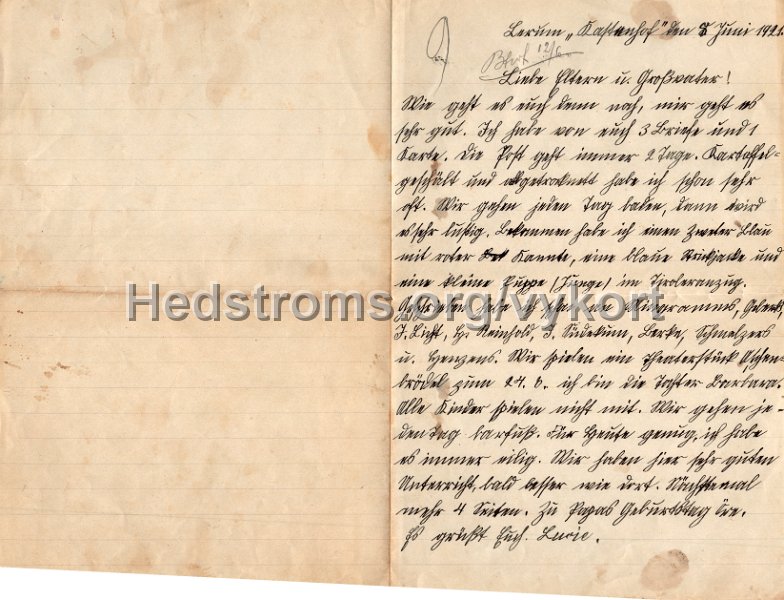 Lerum „Kastanhof" den 8 Juni 1921.
Bktr 12/6
Liebe Eltern u. Großvater!
Wie geht es euch denn noch, mir geht es
sehr gut. Ich habe von euch 3 Briefe und 1
Karte. Die Post geht immer 2 Tage. Kartoffel-
geschält und abgetrocknet habe ich schon sehr
oft. Wir gehen jeden Tag baden, dann wird
es sehr lustig. Bekommen habe ich einen Sweter blau
mit roter Kannte, eine blaue Strickjacke und
eine kleine Puppe (Junge) im Tiroleranzug.
Geschrieben habe ich schon
J. Licht, H. Reinhold, J. Südekum, Schmelzers
u. Henzens. Wir spielen ein Theaterstück Aschen-
brödel zum 24. 6. ich bin die Tochter Barbara.
Alle Kinder spielen nicht mit. Wir gehen je-
den Tag barfuß. Für heute genug, ich habe
es immer eilig. Wir haben hier sehr guten
Unterricht, bald besser wie dort. Nächstemal
mehr 4 Seiten. Zu Papas Geburtstag Öre.
Es grüßt Euch. Lucie.
Hedstroms.org/vykort